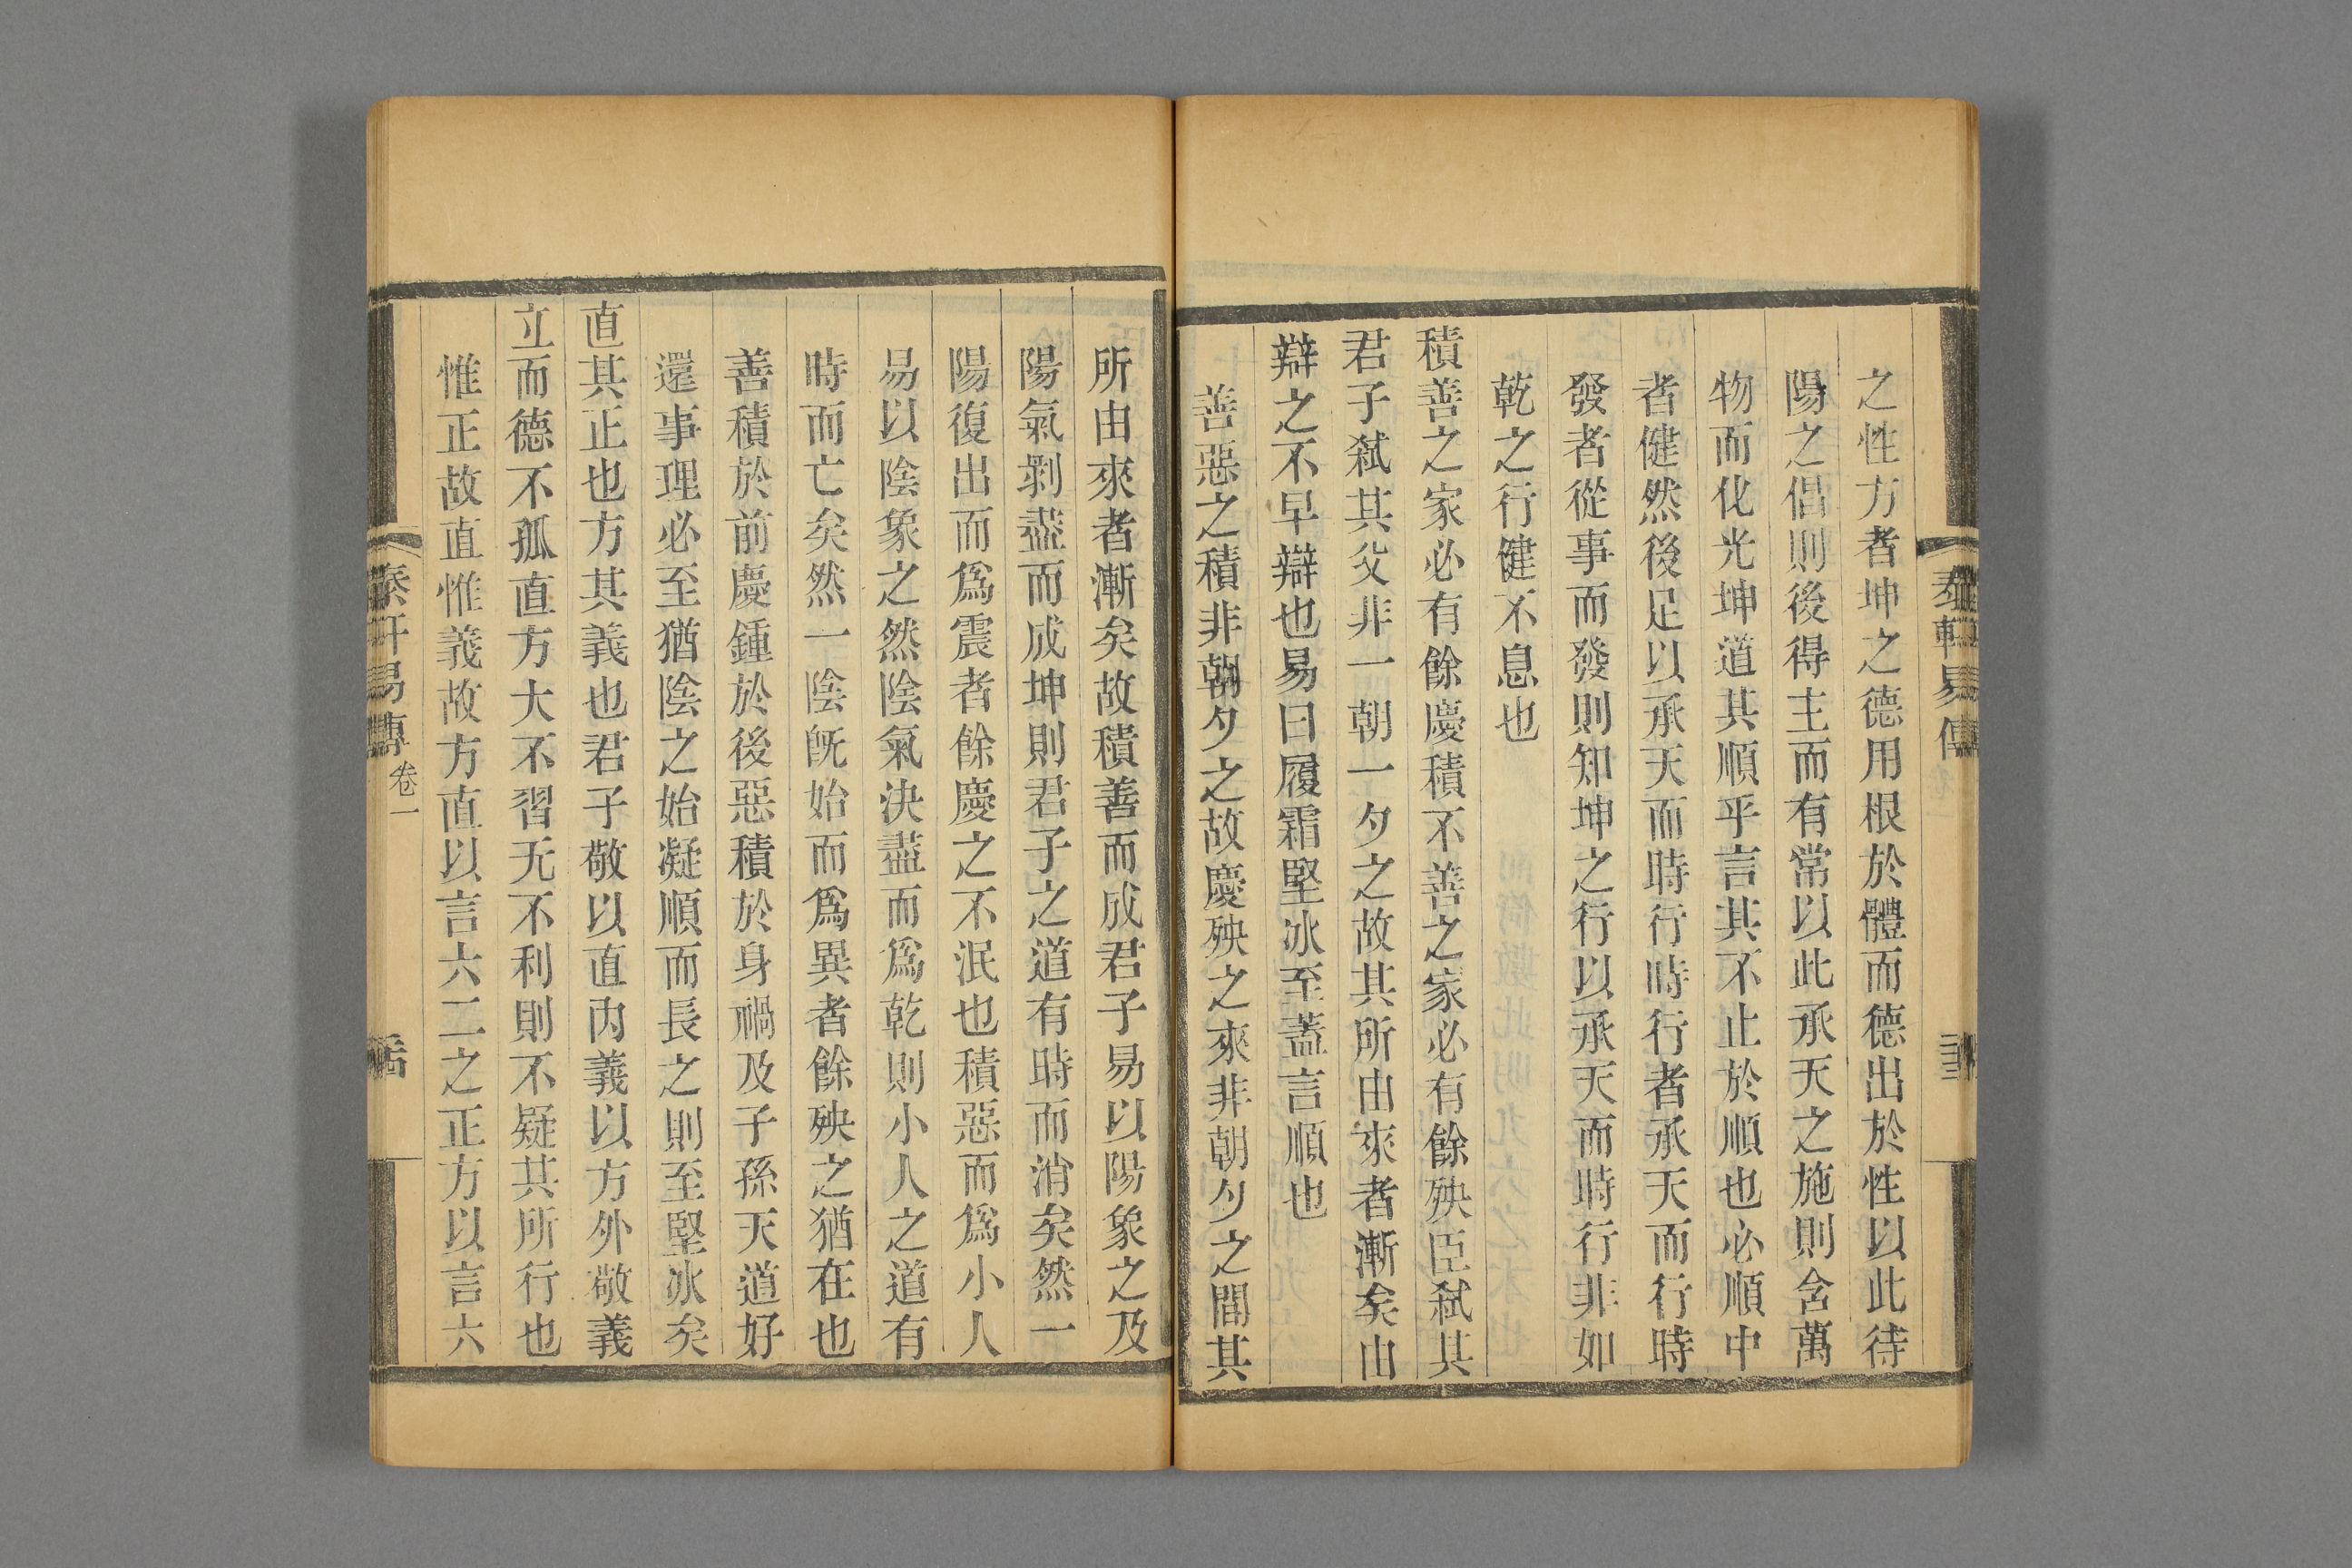 之性方者坤之德用根於體而德出於性以此待
陽之倡則後得主而有常以此承天之施則含萬
物而化光坤道其順乎言其不止於順也必順中
者健然後足以承天而時行時行者承天而行時
發者從事而發則知坤之行以承天而時行非如
乾之行健不息也
積善之家必有餘慶積不善之家必有餘殃臣弑其
君子弑其父非一朝一夕之故其所由來者漸矣由
辯之不早辯也易曰履霜堅冰至蓋言順也
善惡之積非朝夕之故慶殃之來非朝夕之間其
所由來者漸矣故積善而成君子易以陽象之及
陽氣剝盡而成坤則君子之道有時而消矣然一
陽復出而爲震者餘慶之不泯也積惡而爲小人
易以陰象之然陰氣決盡而爲乾則小人之道有
時而亡矣然一陰旣始而爲巽者餘殃之猶在也
善積於前慶鍾於後惡積於身禍及子孫天道好
還事理必至猶陰之始凝順而長之則至堅冰矣
直其正也方其義也君子敬以直內義以方外敬義
立而德不孤直方大不習无不利則不疑其所行也
惟正故直惟義故方直以言六二之正方以言六
易傳
卷一